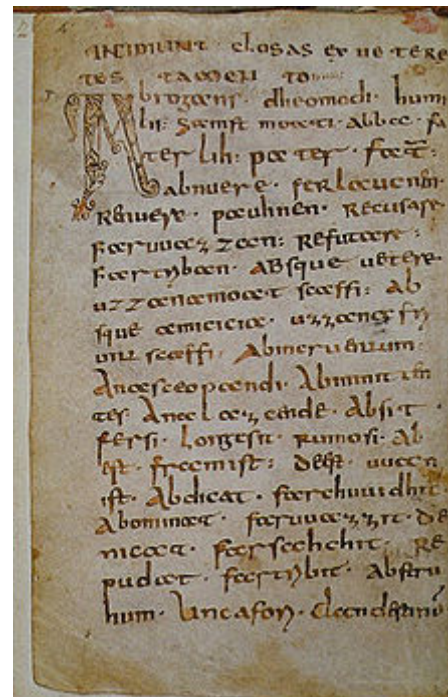 INCIPIUNT closas ex uetere
tes tamen to
Abrogans. dheomodi. hum
ilis: samft moati. abbae. fa
ter lih: pater.
abnuere. ferlaucnen.
Renuere. pauhnen. Recusare
faruuazzan: Refutare.
fartriban. Absque uetere
uzzana moat scaffi: ab
sque amicicia. uzzana fri
unt scaffi.
Anasceopandi.
tes. Ana lazende. Absit
fersi. Longe sit. rumo si. Ab
est. fram ist: deest. uuan
ist. Abdicat. farchuuidhit
Abominat. faruuazzit. de
negat. farsechchit. Re
pudat. fartribit. Abstru
hum.